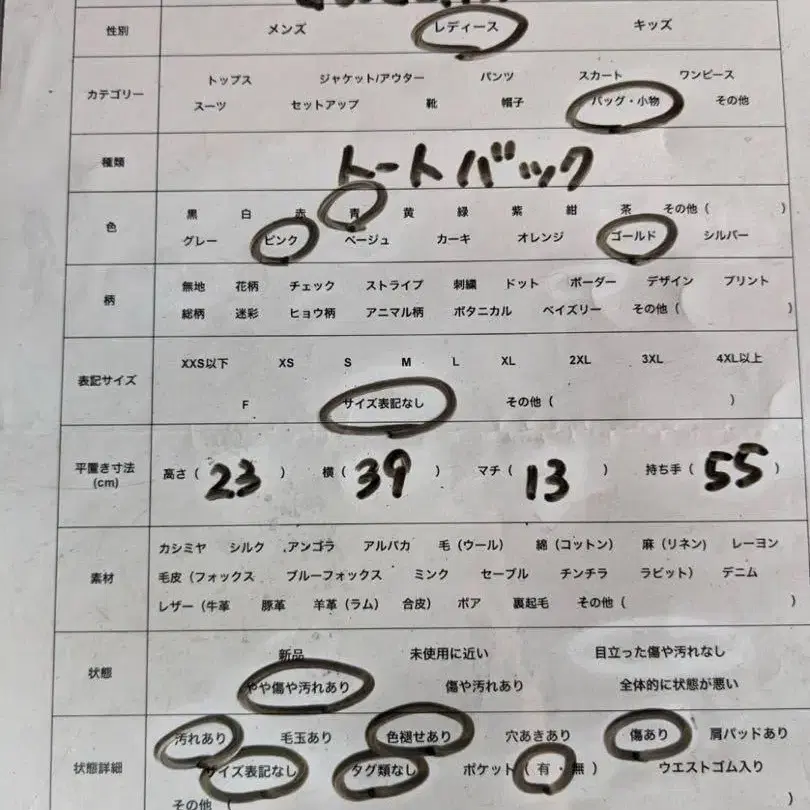 性別 メンズ レディース キッズ
カテゴリー トップス ジャケット/アウター パンツ スカート ワンピース
スーツ セットアップ 靴 帽子 バッグ・小物 その他
種類 トートバック
色 黒 白 赤 青 黄 緑 紫 紺 茶 その他( )
グレー ピンク ベージュ カーキ オレンジ ゴールド シルバー
柄 無地 花柄 チェック ストライプ 刺繍 ドット ボーダー デザイン プリント
総柄 迷彩 ヒョウ柄 アニマル柄 ボタニカル ペイズリー その他( )
表記サイズ XXS以下 XS S M L XL 2XL 3XL 4XL以上
F サイズ表記なし その他( )
平置き寸法 高さ( 23 ) 横( 39 ) マチ( 13 ) 持ち手( 55 )
(cm)
素材 カシミヤ シルク アンゴラ アルパカ 毛(ウール) 綿(コットン) 麻(リネン) レーヨン
毛皮(フォックス ブルーフォックス ミンク セーブル チンチラ ラビット) デニム
レザー(牛革 豚革 羊革(ラム) 合皮) ボア 裏起毛 その他( )
状態 新品 未使用に近い 目立った傷や汚れなし
やや傷や汚れあり 傷や汚れあり 全体的に状態が悪い
状態詳細 汚れあり 毛玉あり 色褪せあり 穴あきあり 傷あり 肩パッドあり
サイズ表記なし タグ類なし ポケット( 有 ・ 無 ) ウエストゴム入り
その他( )